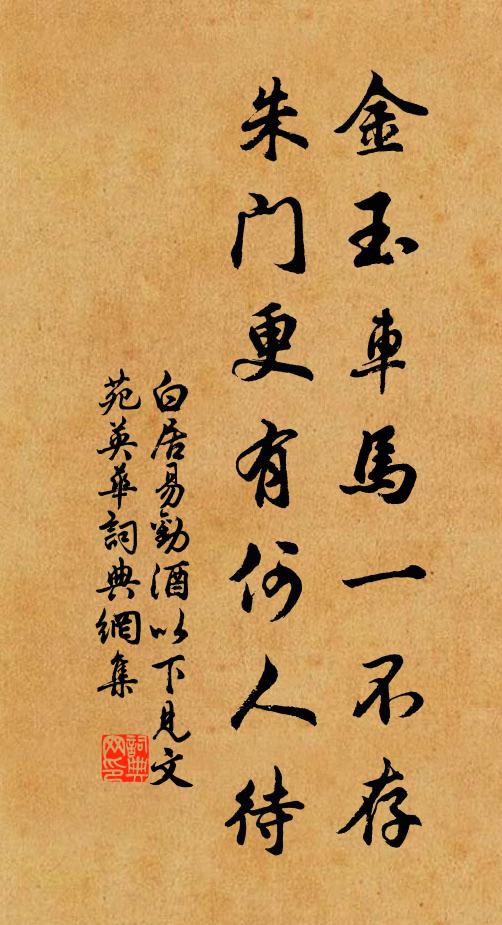 金玉車馬一不存
朱門更有何人待
白居易勸酒以下見文
苑英華詞典網集
詞典
网印